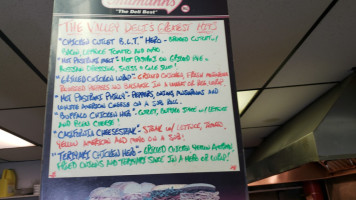 "The Deli Best"
THE VALLEY DELI'S GREATEST HITS
"CHICKEN CUTLET B.L.T." HERO - BREADED CUTLET w/
BACON, LETTUCE TOMATO AND MAYO.
HOT PASTRAMI ON
RUSSIAN DRESSING, SWISS & COLE SLAW
"GRILLED CHICKEN WRAP" - GRILLED CHICKEN, FRESH MOZZARELLA
ROASTED PEPPERS AND IN A WRAP OR HERO
"HOT PASTRAMI PHILLY" - PEPPERS, ONIONS, MUSHROOMS AND
WHITE AMERICAN CHEESE ON A SUB ROLL.
"BUFFALO CHICKEN HERO" - CUTLET, BUFFALO SAUCE w/ LETTUCE
AND BLEU CHEESE!
"CALIFORNIA CHEESESTEAK" - STEAK w/ LETTUCE, TOMATO,
YELLOW AMERICAN AND MAYO ON A SUB!
"TERIYAKI CHICKEN HERO" - GRILLED CHICKEN, YELLOW AMERICAN,
FRIED ONIONS AND TERIYAKI SAUCE IN A HERO OR WRAP!